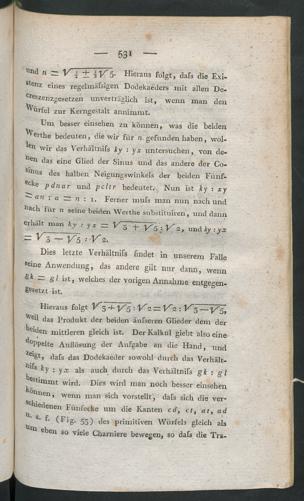 — 531 —
und n = √ ½ ± ½ √ 5. Hieraus folgt, daſs die Exi-
stenz eines regelmäſsigen Dodekaëders mit allen De-
crescenzgesetzen unverträglich ist, wenn man den
Würfel zur Kerngestalt annimmt.
Um besser einsehen zu können, was die beiden
Werthe bedeuten, die wir für n gefunden haben, wol-
len wir das Verhältniſs ky : yx untersuchen, von de-
nen das eine Glied der Sinus und das andere der Co-
sinus des halben Neigungswinkels der beiden Fünf-
ecke pdnar und pcltr bedeutet. Nun ist ky : xy
= an : a = n : 1. Ferner muſs man nun nach und
nach für n seine beiden Werthe substituiren, und dann
erhält man ky : yx = √ 3 + √ 5 : √ 2, und ky : yx
= √ 3 — √ 5 : √ 2.
Dies letzte Verhältniſs findet in unserem Falle
seine Anwendung, das andere gilt nur dann, wenn
gk = gl ist, welches der vorigen Annahme entgegen-
gesetzt ist.
Hieraus folgt √ 3 + √ 5 : √ 2 = √ 2 : √ 3 — √ 5,
weil das Produkt der beiden äuſseren Glieder dem der
beiden mittleren gleich ist. Der Kalkul giebt also eine
doppelte Auflösung der Aufgabe an die Hand, und
zeigt, daſs das Dodekaëder sowohl durch das Verhält-
niſs ky : yx als auch durch das Verhältniſs gk : gl
bestimmt wird. Dies wird man noch besser einsehen
können, wenn man sich vorstellt, daſs sich die ver-
schiedenen Fünfecke um die Kanten cd, ct, at, ad
u. s. f. (Fig. 55) des primitiven Würfels gleich als
um eben so viele Charniere bewegen, so daſs die Tra-